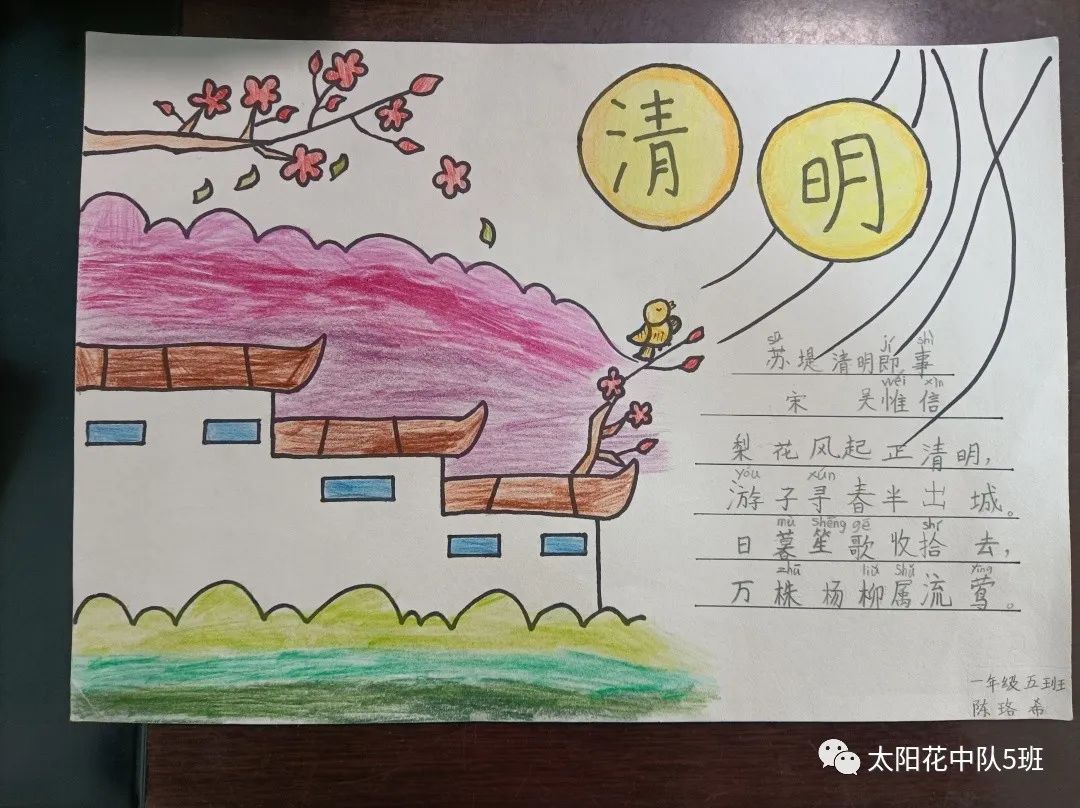 清
明
sū jí shì
苏堤清明即事
wéi xìn
宋 吴惟信
梨花风起正清明，
yóu xún
游子寻春半出城。
mù shēng gē shí
日暮笙歌收拾去，
zhū liǔ shǔ yīng
万株杨柳属流莺。
一年级五班
陈珞希
太阳花中队5班